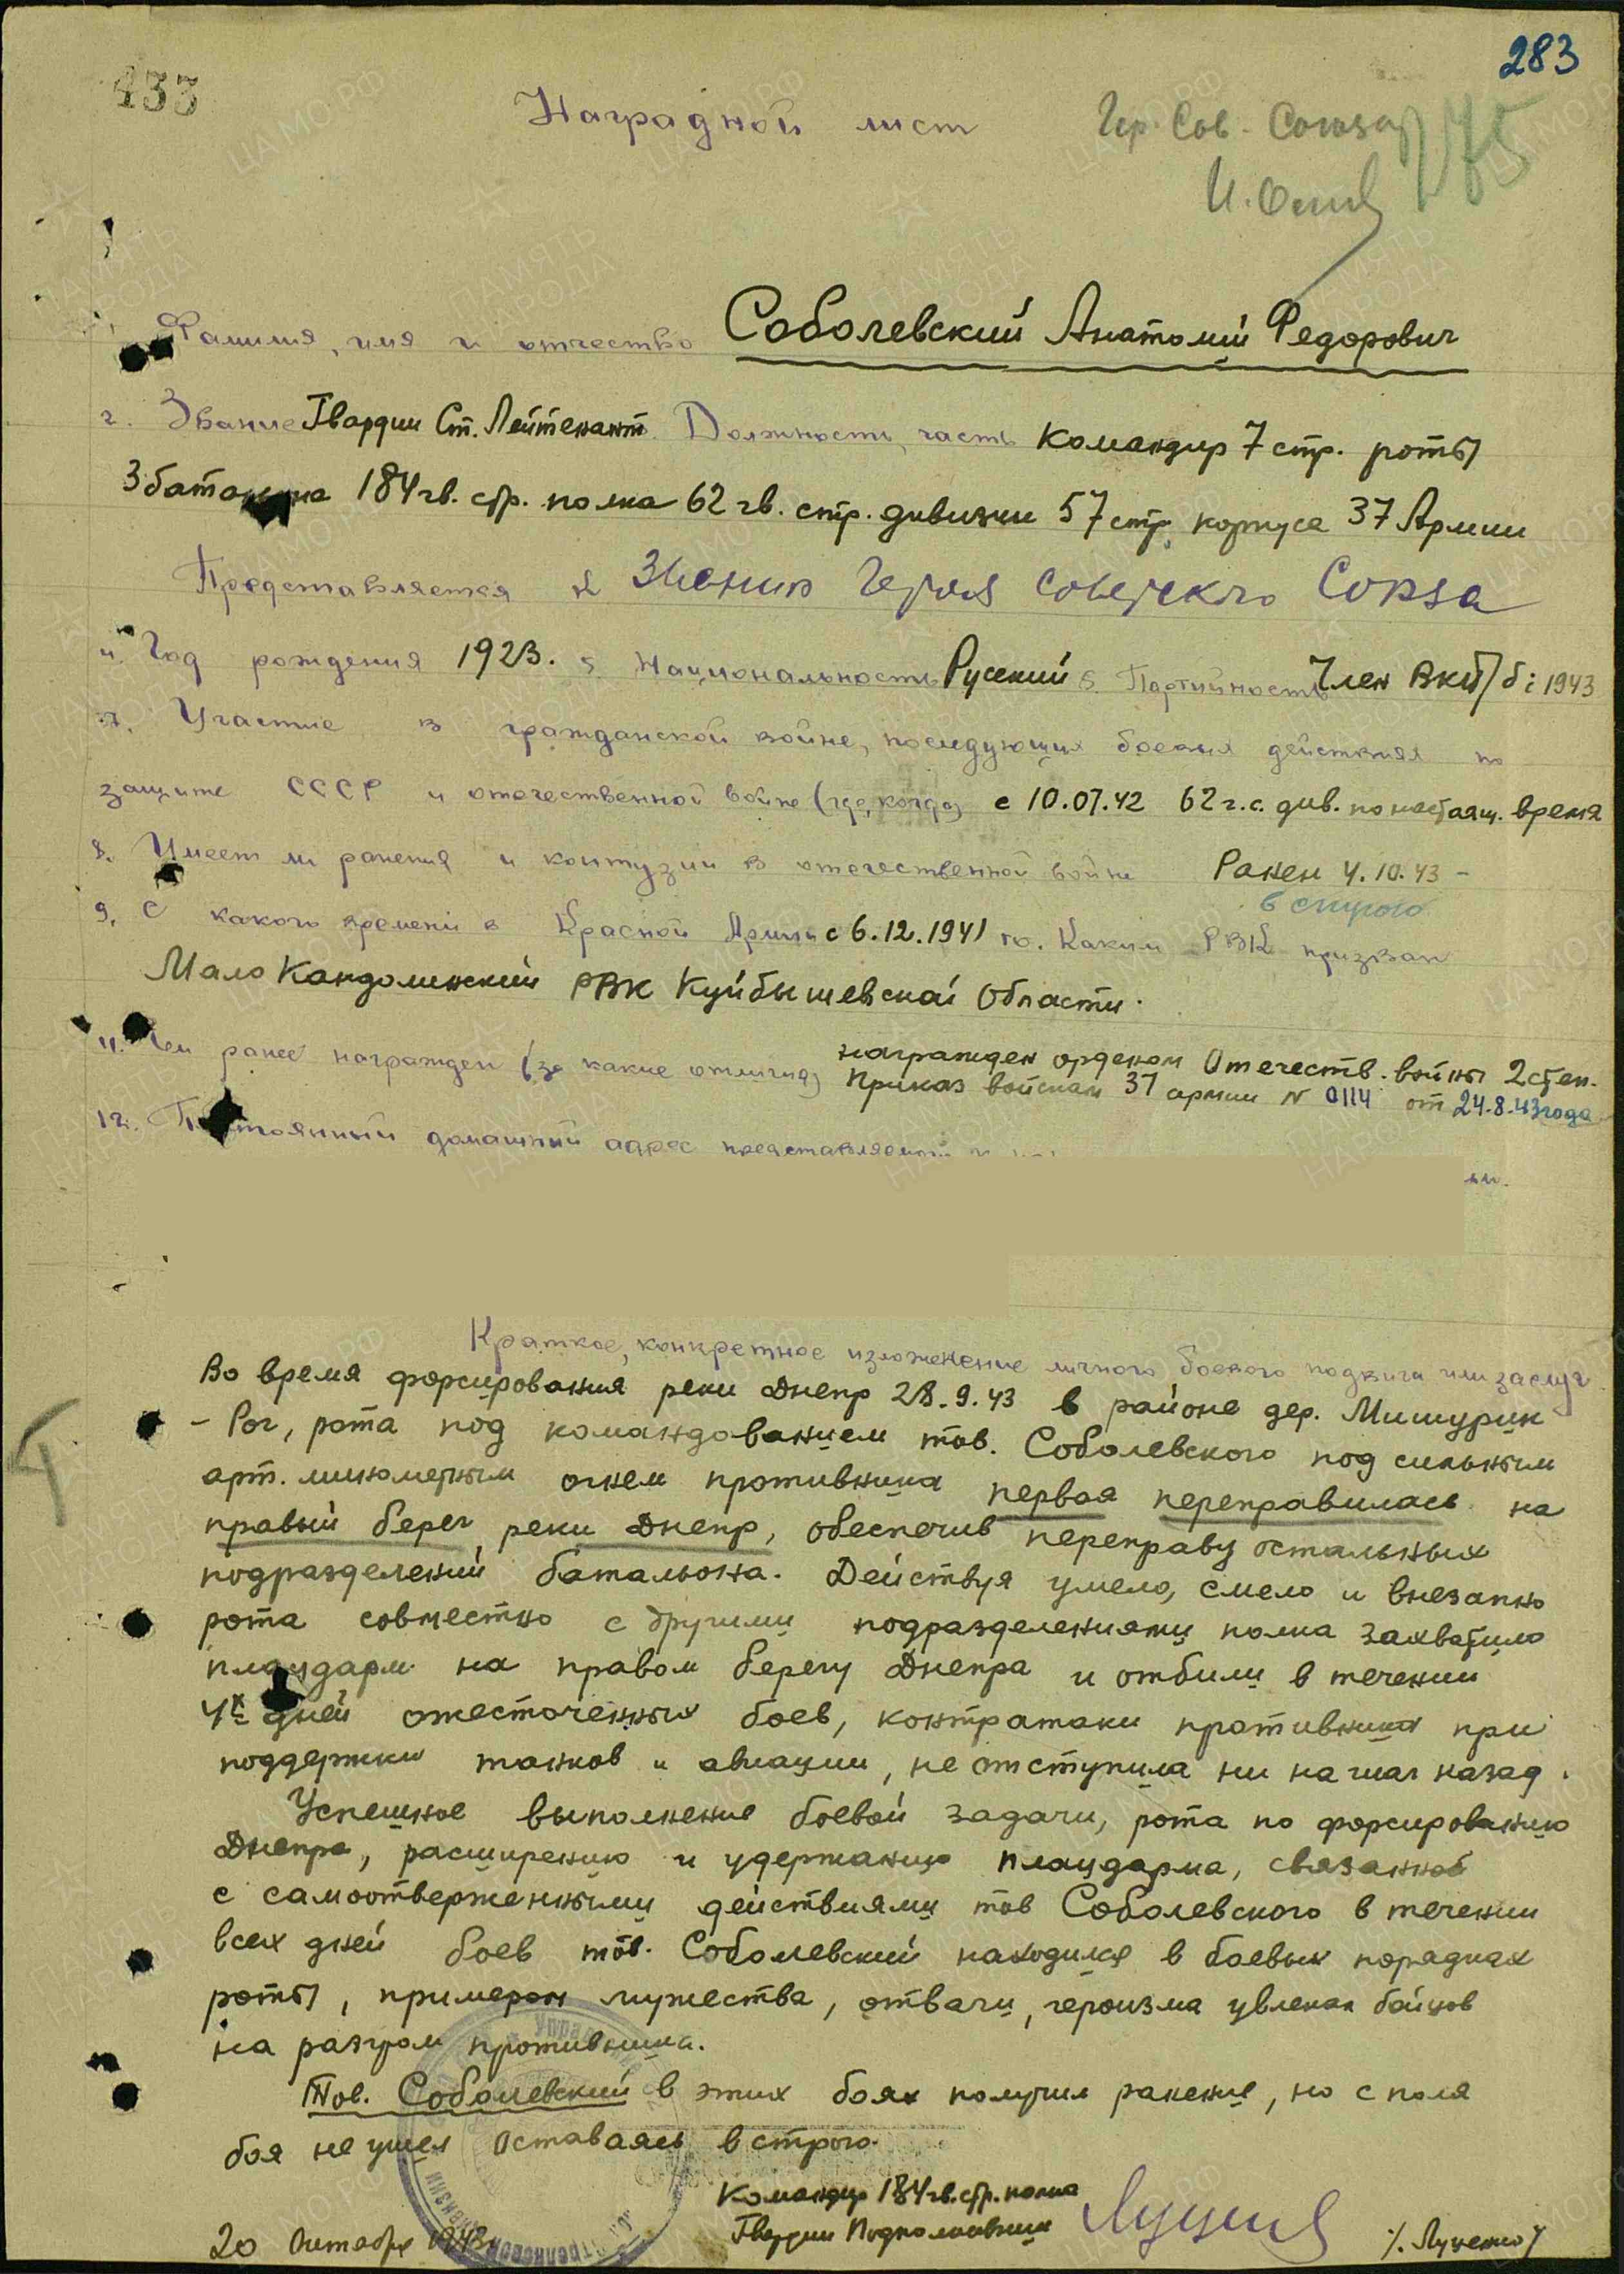 433
283
Наградной лист
Гер. Сов. Союза
Фамилия, имя и отчество Соболевский Анатолий Федорович
2. Звание Гвардии Ст. Лейтенант. Должность, часть командир 7 стр. роты
3 батальона 184 гв. стр. полка 62 гв. стр. дивизии 57 стр. корпуса 37 Армии
Представляется к Званию Героя Советского Союза
4. Год рождения 1923. 5 Национальность Русский 6. Партийность Член ВКП/б с 1943
7. Участие в гражданской войне, последующих боевых действиях по
защите СССР и отечественной войне (где, когда) с 10.07.42 62 г.с. див. по настоящ. время
8. Имеет ли ранения и контузии в отечественной войне Ранен 4.10.43 -
в строю
9. С какого времени в Красной Армии с 6.12.1941 10. Каким РВК призван
Мало Кандалинский РВК Куйбышевской Области.
11. Чем ранее награжден (за какие отличия) награжден орденом Отечеств. войны 2 степ.
Приказ войскам 37 армии N 0114 от 24.8.43 года
12. Постоянный домашний адрес представляемого к
Краткое, конкретное изложение личного боевого подвига или заслуг
Во время форсирования реки Днепр 28.9.43 в районе дер. Мишурин
- Рог, рота под командованием тов. Соболевского под сильным
арт. минометным огнем противника первая переправилась на
правый берег реки Днепр, обеспечив переправу остальных
подразделений батальона. Действуя умело, смело и внезапно
рота совместно с другими подразделениями полка захватила
плацдарм на правом берегу Днепра и отбили в течении
4х дней ожесточенных боев, контратаки противника при
поддержки танков и авиации, не отступила ни на шаг назад.
Успешное выполнение боевой задачи, рота по форсированию
Днепра, расширению и удержанию плацдарма, связанное
с самоотверженными действиями тов Соболевского в течении
всех дней боев тов. Соболевский находился в боевых порядках
роты, примером мужества, отваги, героизма увлекая бойцов
на разгром противника.
Тов. Соболевский в этих боях получил ранение, но с поля
боя не ушел оставаясь в строю.
Командир 184 гв. стр. полка
Гвардии Подполковник /. Луценко /
20 октября 1943